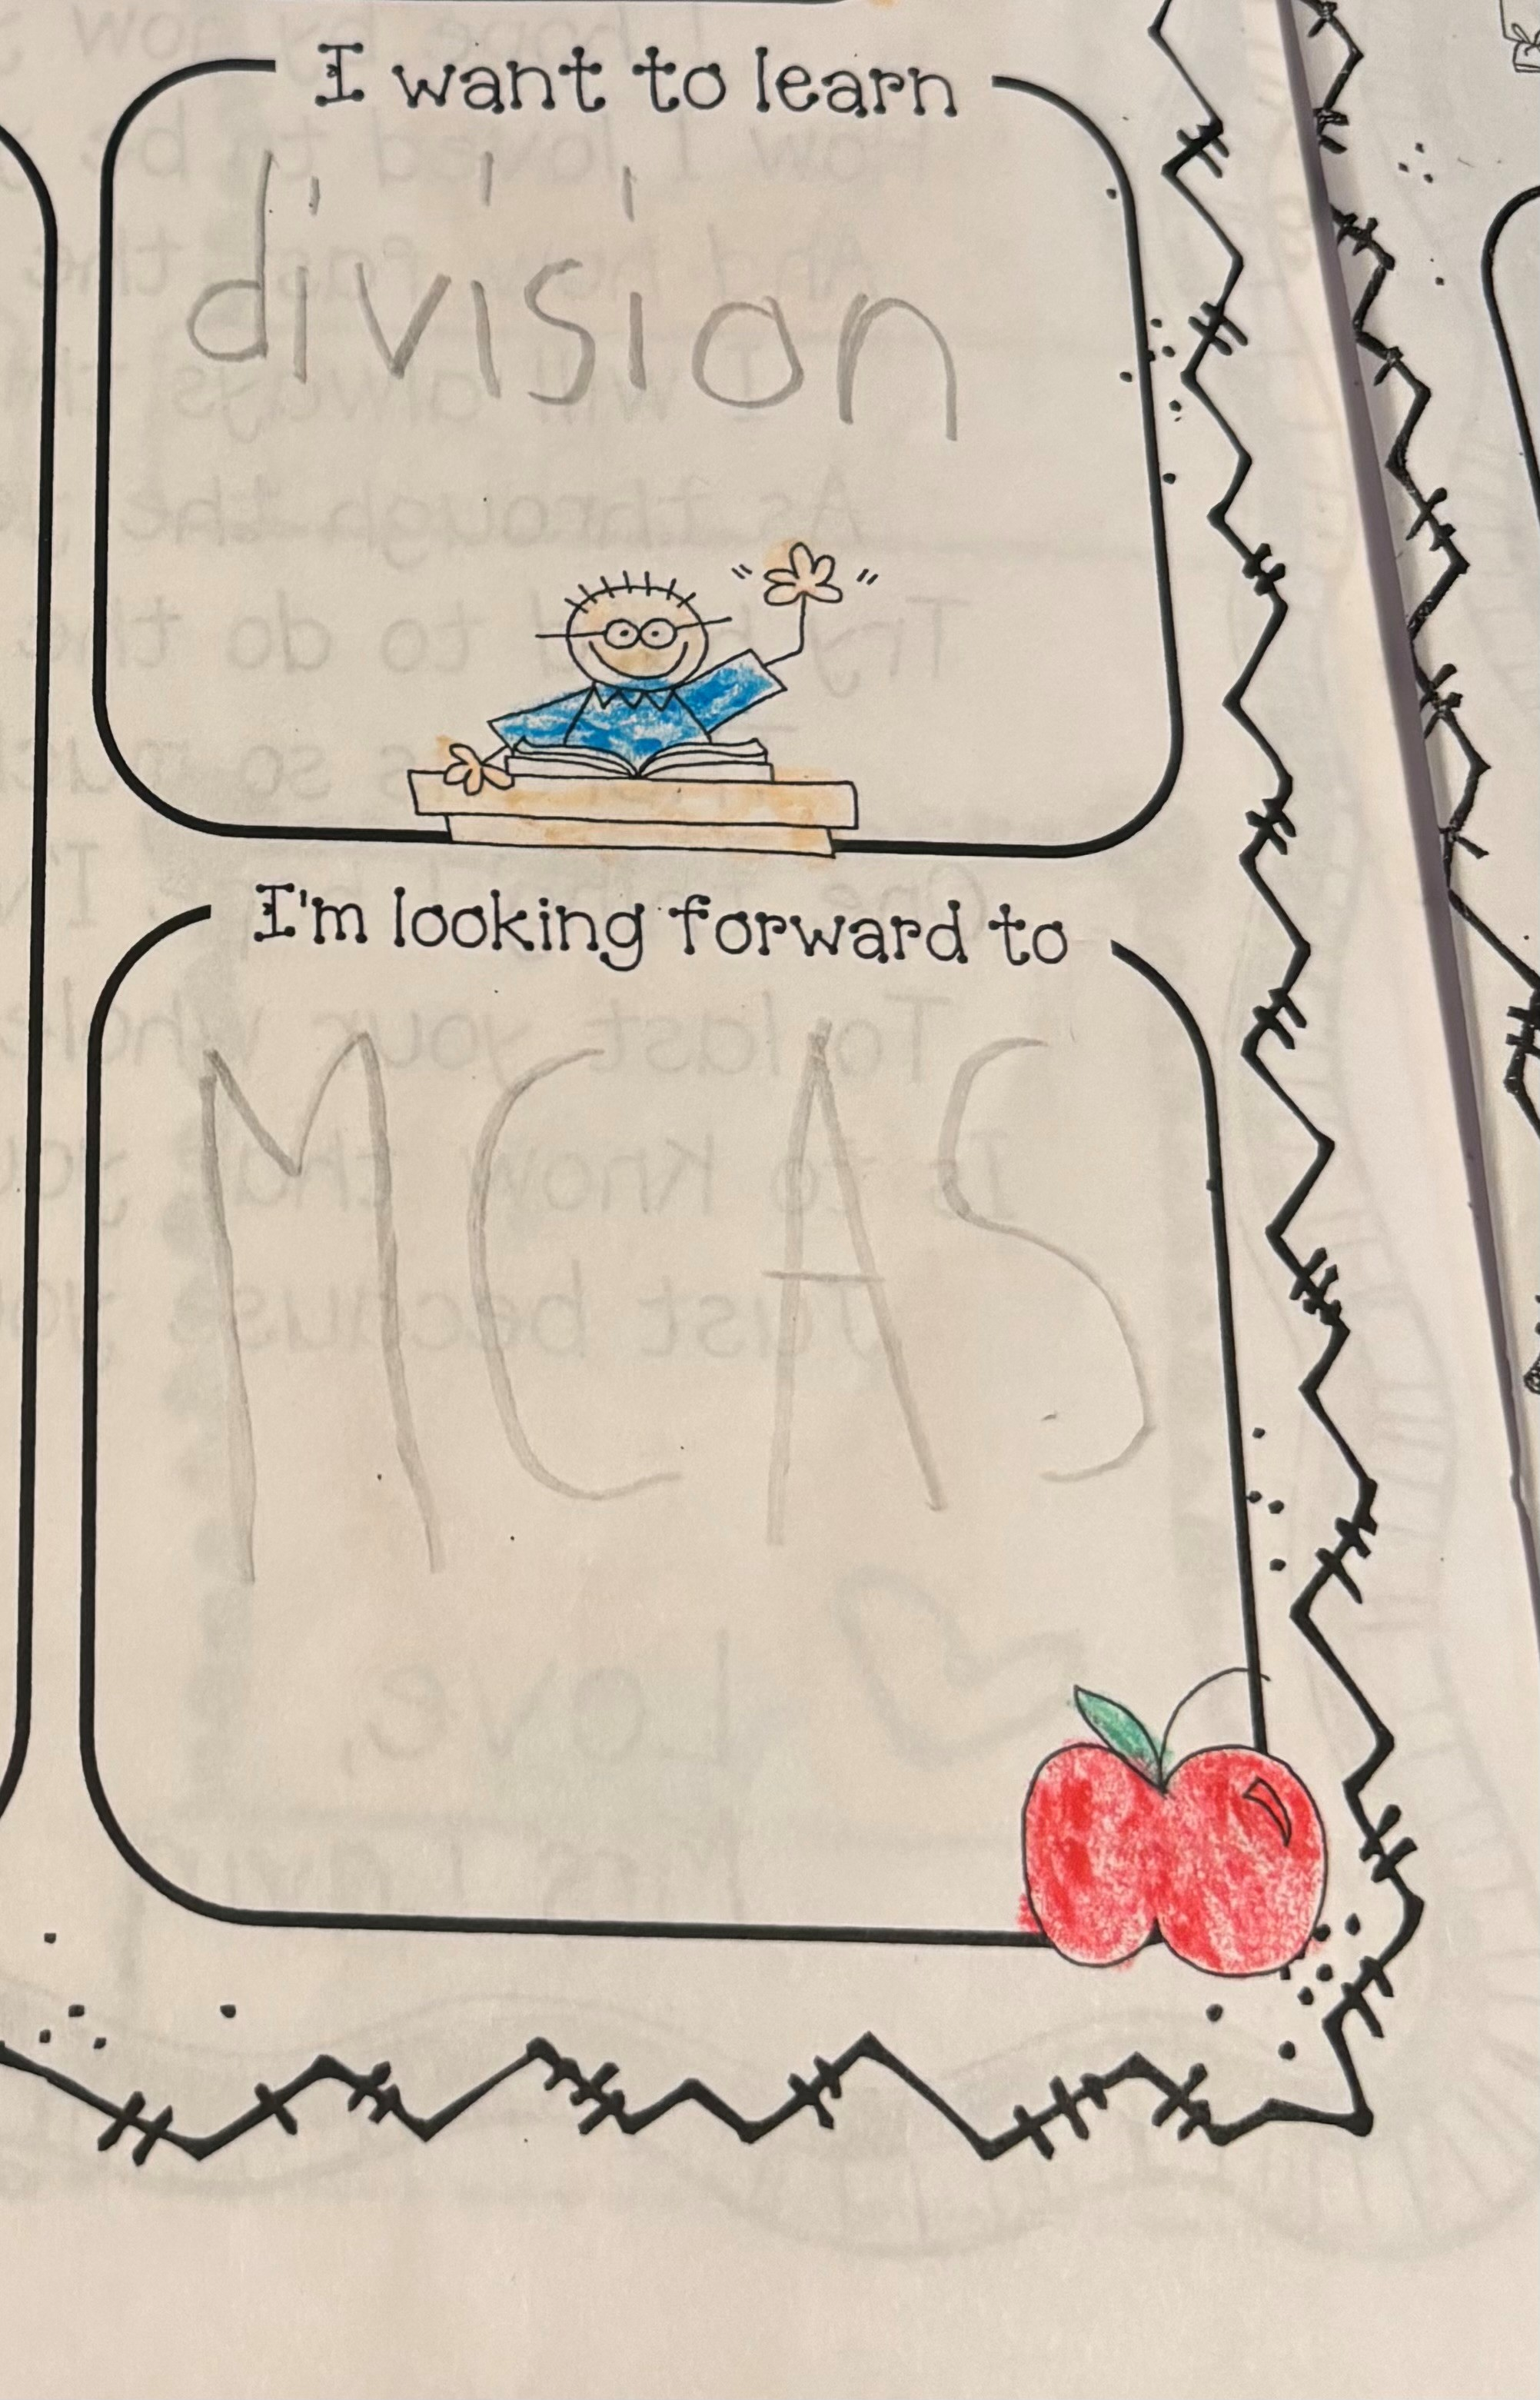 I want to learn
division
I'm looking forward to
MCAS